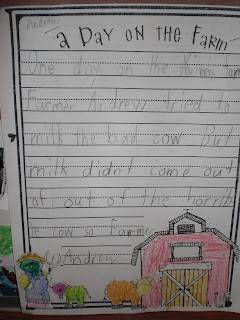 Andrew
A DAY ON THE FARM
One day on the farm
Farmer Andrew tried to
milk the bad cow But
milk didn't come out
of out of the horrib
le cow so Farmer
by Andrew